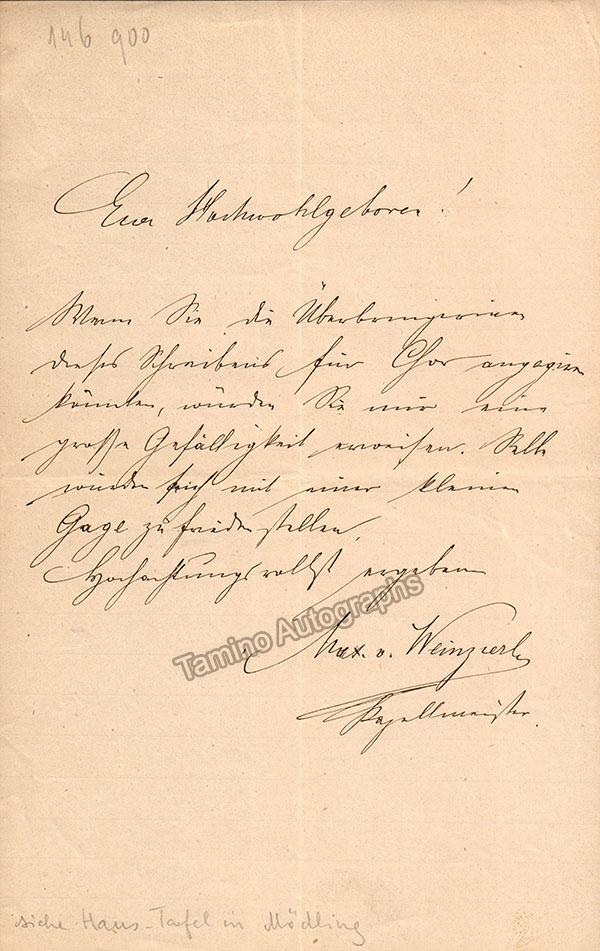 146 900
Euer Hochwohlgeboren!
Wenn Sie die Überbringerinen
dieses Schreibens für Chor engagiren
könnten, würden Sie mir eine
große Gefälligkeit erweisen. Selbe
würden sich mit einer kleinen
Gage zufrieden stellen.
Hochachtungsvollst ergeben
Tamino Autographs
Max. v. Weinzierl
Kapellmeister.
siehe Haus-Tafel in Mödling